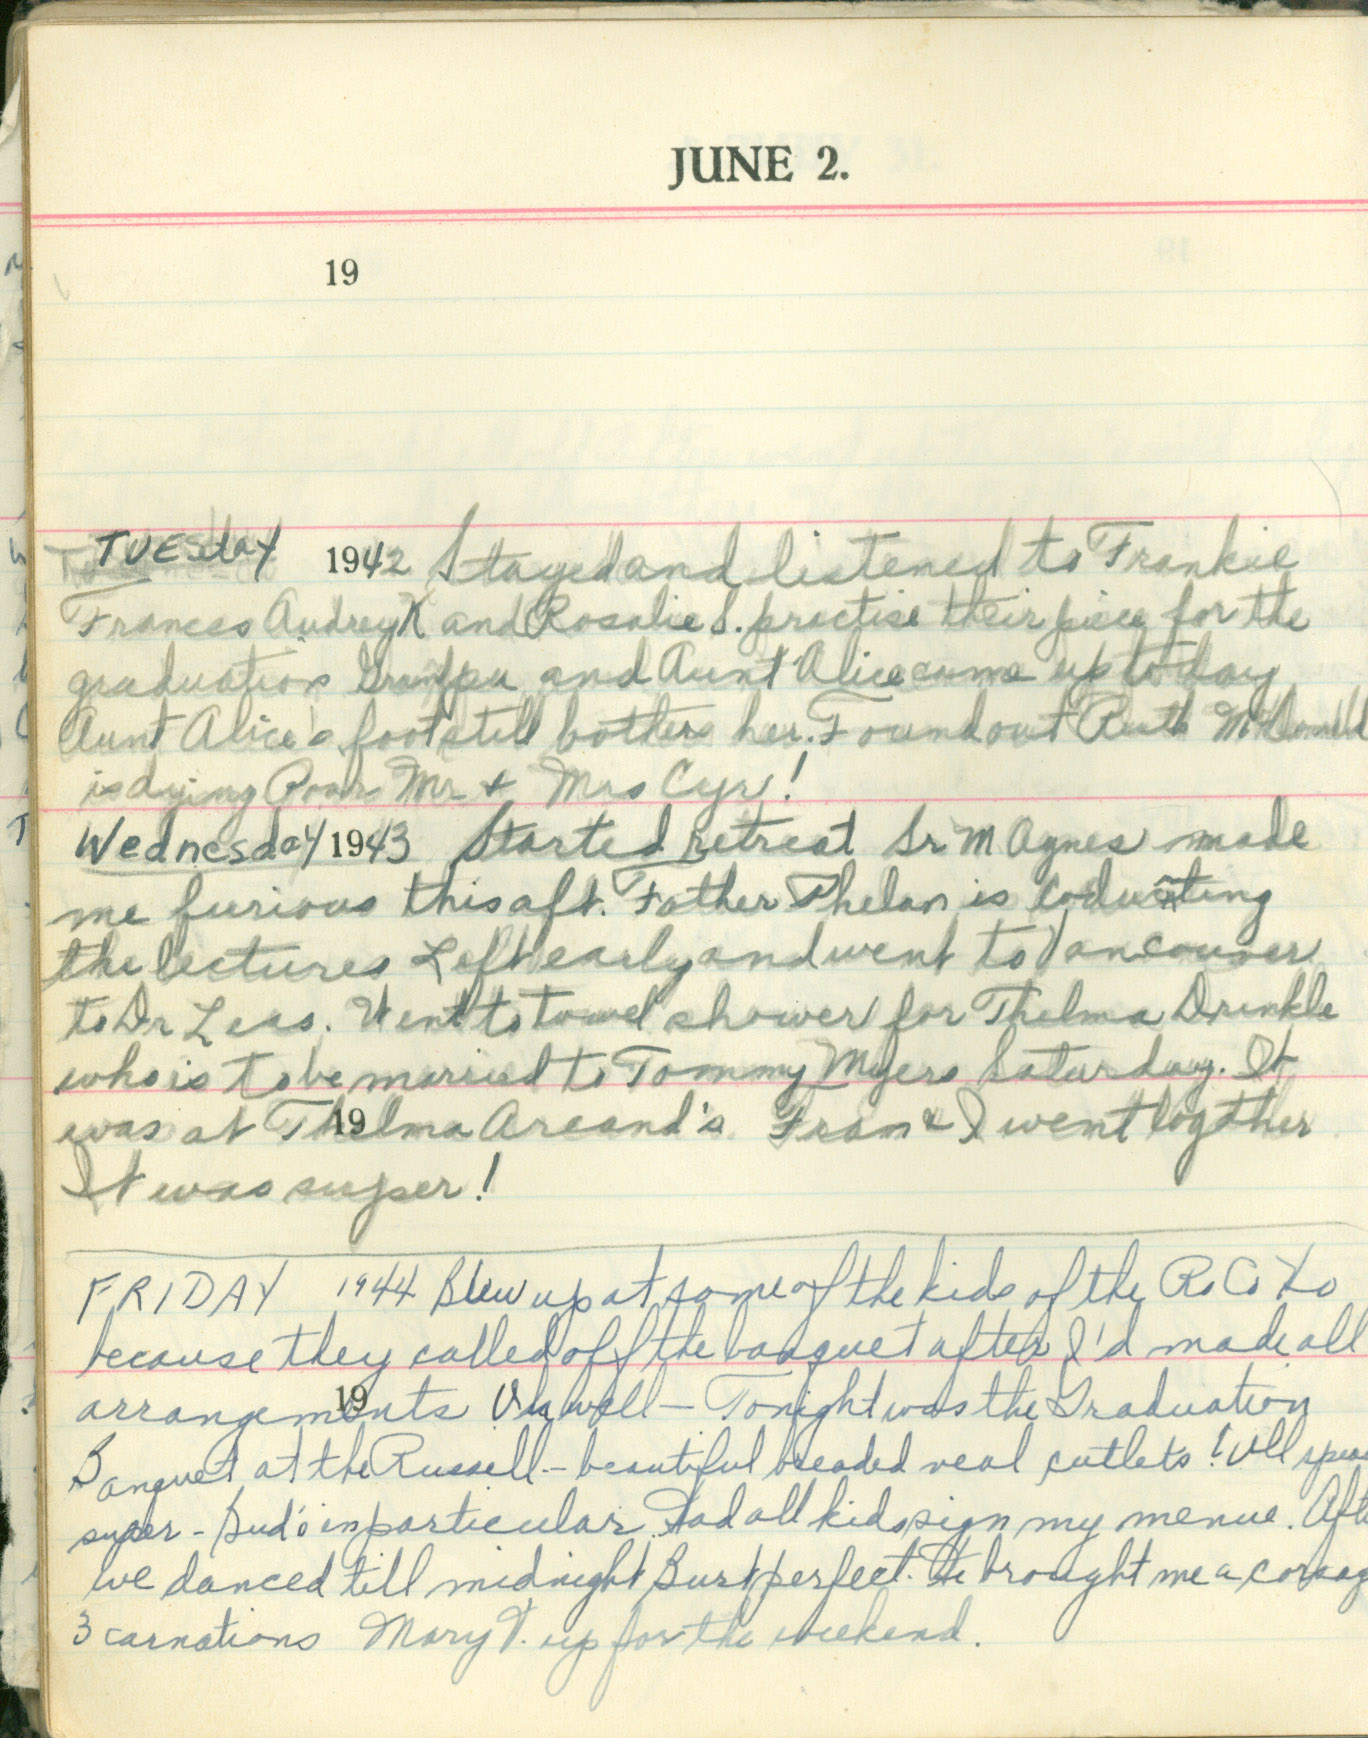 JUNE 2.
19
TUESday 1942 Stayed and listened to Frankie
Frances Audrey K and Rosalie S. practise their piece for the
graduation Grandpa and Aunt Alice came up today
Aunt Alice's foot still bothers her. Found out Ruth McDonald
is dying Poor Mr & Mrs Cyr!
Wednesday 1943 Started retreat Sr M Agnes made
me furious this aft. Father Phelan is coducting
the lectures Left early and went to Vancouver
to Dr Lees. Went to towel shower for Thelma Drinkle
who is to be married to Tommy Myers Saturday. It
was at Thelma Arcand's Fran & I went togther
19
It was super!
FRIDAY 1944 Blew up at some of the kids of the
because they called off the banquet after I'd made all
arrangements Oh well - Tonight was the Graduation
19
Banquet at the Russell - beautiful breaded veal cutlets!
super - Bud's in particular. Had all kids sign my menue.
we danced till midnight Burt perfect. He brought me a corsag
3 carnations Mary F. up for the weekend.